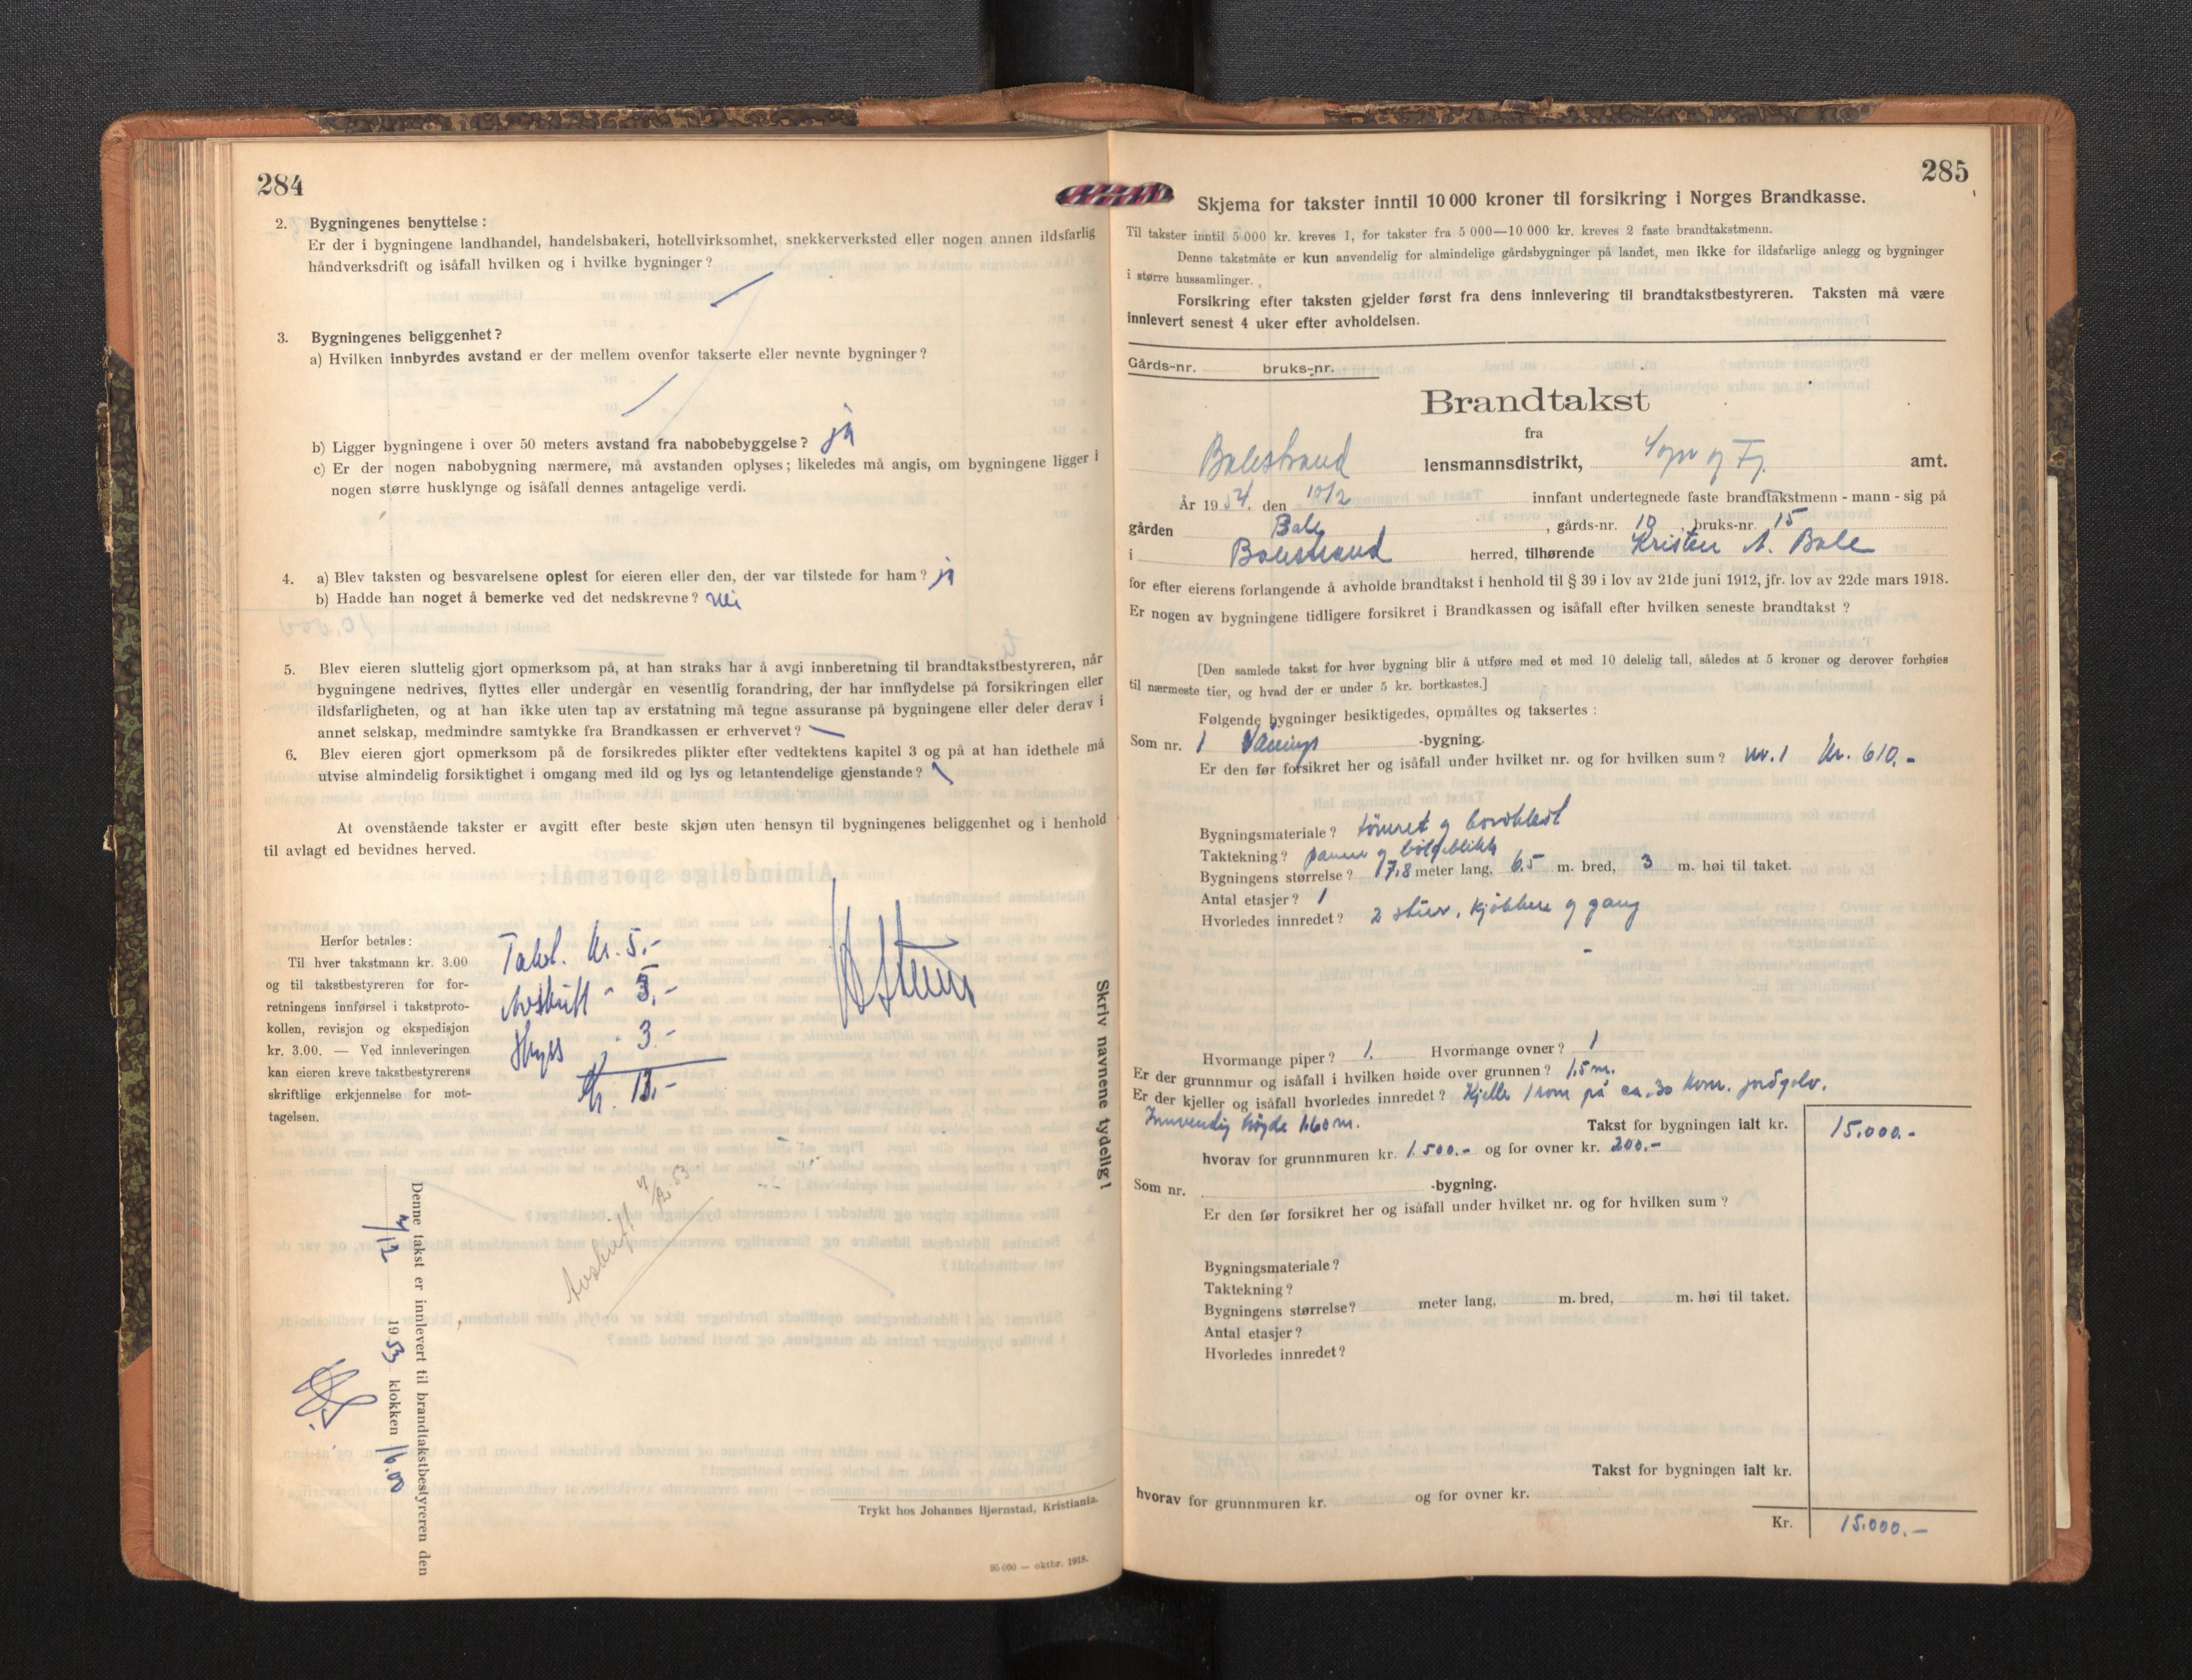 284
2. Bygningenes benyttelse:
Er der i bygningene landhandel, handelsbakeri, hotellvirksomhet, snekkerverksted eller nogen annen ildsfarlig
håndverksdrift og isåfall hvilken og i hvilke bygninger?
3. Bygningenes beliggenhet?
a) Hvilken innbyrdes avstand er der mellem ovenfor takserte eller nevnte bygninger?
b) Ligger bygningene i over 50 meters avstand fra nabobebyggelse? ja
c) Er der nogen nabobygning nærmere, må avstanden oplyses; likeledes må angis, om bygningene ligger i
nogen større husklynge og isåfall dennes antagelige verdi.
4. a) Blev taksten og besvarelsene oplest for eieren eller den, der var tilstede for ham? ja
b) Hadde han noget å bemerke ved det nedskrevne? nei
5. Blev eieren sluttelig gjort opmerksom på, at han straks har å avgi innberetning til brandtakstbestyreren, når
bygningene nedrives, flyttes eller undergår en vesentlig forandring, der har innflydelse på forsikringen eller
ildsfarligheten, og at han ikke uten tap av erstatning må tegne assuranse på bygningene eller deler derav i
annet selskap, medmindre samtykke fra Brandkassen er erhvervet?
6. Blev eieren gjort opmerksom på de forsikredes plikter efter vedtektens kapitel 3 og på at han idethele må
utvise almindelig forsiktighet i omgang med ild og lys og letantendelige gjenstande?
At ovenstående takster er avgitt efter beste skjøn uten hensyn til bygningenes beliggenhet og i henhold
til avlagt ed bevidnes herved.
Herfor betales:
Til hver takstmann kr. 3.00
og til takstbestyreren for for-
retningens innførsel i takstproto-
kollen, revisjon og ekspedisjon
kr. 3.00. — Ved innleveringen
kan eieren kreve takstbestyrerens
skriftlige erkjennelse for mot-
tagelsen.
Takst. kr. 5.-
Avskrift - 5.-
- 3.-
kr. 13.-
Skriv navnene tydelig!
Avskrift 7/12 53
Denne takst er innlevert til brandtakstbestyreren den
7/12 1953 klokken 16.00
Trykt hos Johannes Bjørnstad, Kristiania.
95 000 — oktbr. 1918.
285
Skjema for takster inntil 10 000 kroner til forsikring i Norges Brandkasse.
Til takster inntil 5 000 kr. kreves 1, for takster fra 5 000—10 000 kr. kreves 2 faste brandtakstmenn.
Denne takstmåte er kun anvendelig for almindelige gårdsbygninger på landet, men ikke for ildsfarlige anlegg og bygninger
i større hussamlinger.
Forsikring efter taksten gjelder først fra dens innlevering til brandtakstbestyreren. Taksten må være
innlevert senest 4 uker efter avholdelsen.
Gårds-nr. bruks-nr.
Brandtakst
fra
Balestrand lensmannsdistrikt, Sogn og Fj. amt.
År 1954. den 10/2 innfant undertegnede faste brandtakstmenn - mann - sig på
gården Bale, gårds-nr. 10, bruks-nr. 15
i Balestrand herred, tilhørende Kristen A. Bale
for efter eierens forlangende å avholde brandtakst i henhold til § 39 i lov av 21de juni 1912, jfr. lov av 22de mars 1918.
Er nogen av bygningene tidligere forsikret i Brandkassen og isåfall efter hvilken seneste brandtakst?
[Den samlede takst for hver bygning blir å utføre med et med 10 delelig tall, således at 5 kroner og derover forhøies
til nærmeste tier, og hvad der er under 5 kr. bortkastes.]
Følgende bygninger besiktigedes, opmåltes og taksertes:
Som nr. 1 Vånings -bygning.
Er den før forsikret her og isåfall under hvilket nr. og for hvilken sum? nr. 1 kr. 610.-
Bygningsmateriale? tømret og bordkledt
Taktekning? panner og bølgeblikk
Bygningens størrelse? 17,8 meter lang, 6,5 m. bred, 3 m. høi til taket.
Antal etasjer? 1
Hvorledes innredet? 2 stuer, kjøkken og gang
Hvormange piper? 1. Hvormange ovner? 1
Er der grunnmur og isåfall i hvilken høide over grunnen? 1,5 m.
Er der kjeller og isåfall hvorledes innredet? Kjeller 1 rom på ca. 30 kvm. jordgolv.
Innvendig høgde 1.60 m. Takst for bygningen ialt kr. 15.000.-
hvorav for grunnmuren kr. 1.500.- og for ovner kr. 200.-
Som nr. -bygning.
Er den før forsikret her og isåfall under hvilket nr. og for hvilken sum?
Bygningsmateriale?
Taktekning?
Bygningens størrelse? meter lang, m. bred, m. høi til taket.
Antal etasjer?
Hvorledes innredet?
Takst for bygningen ialt kr.
hvorav for grunnmuren kr. og for ovner kr.
Kr. 15.000.-